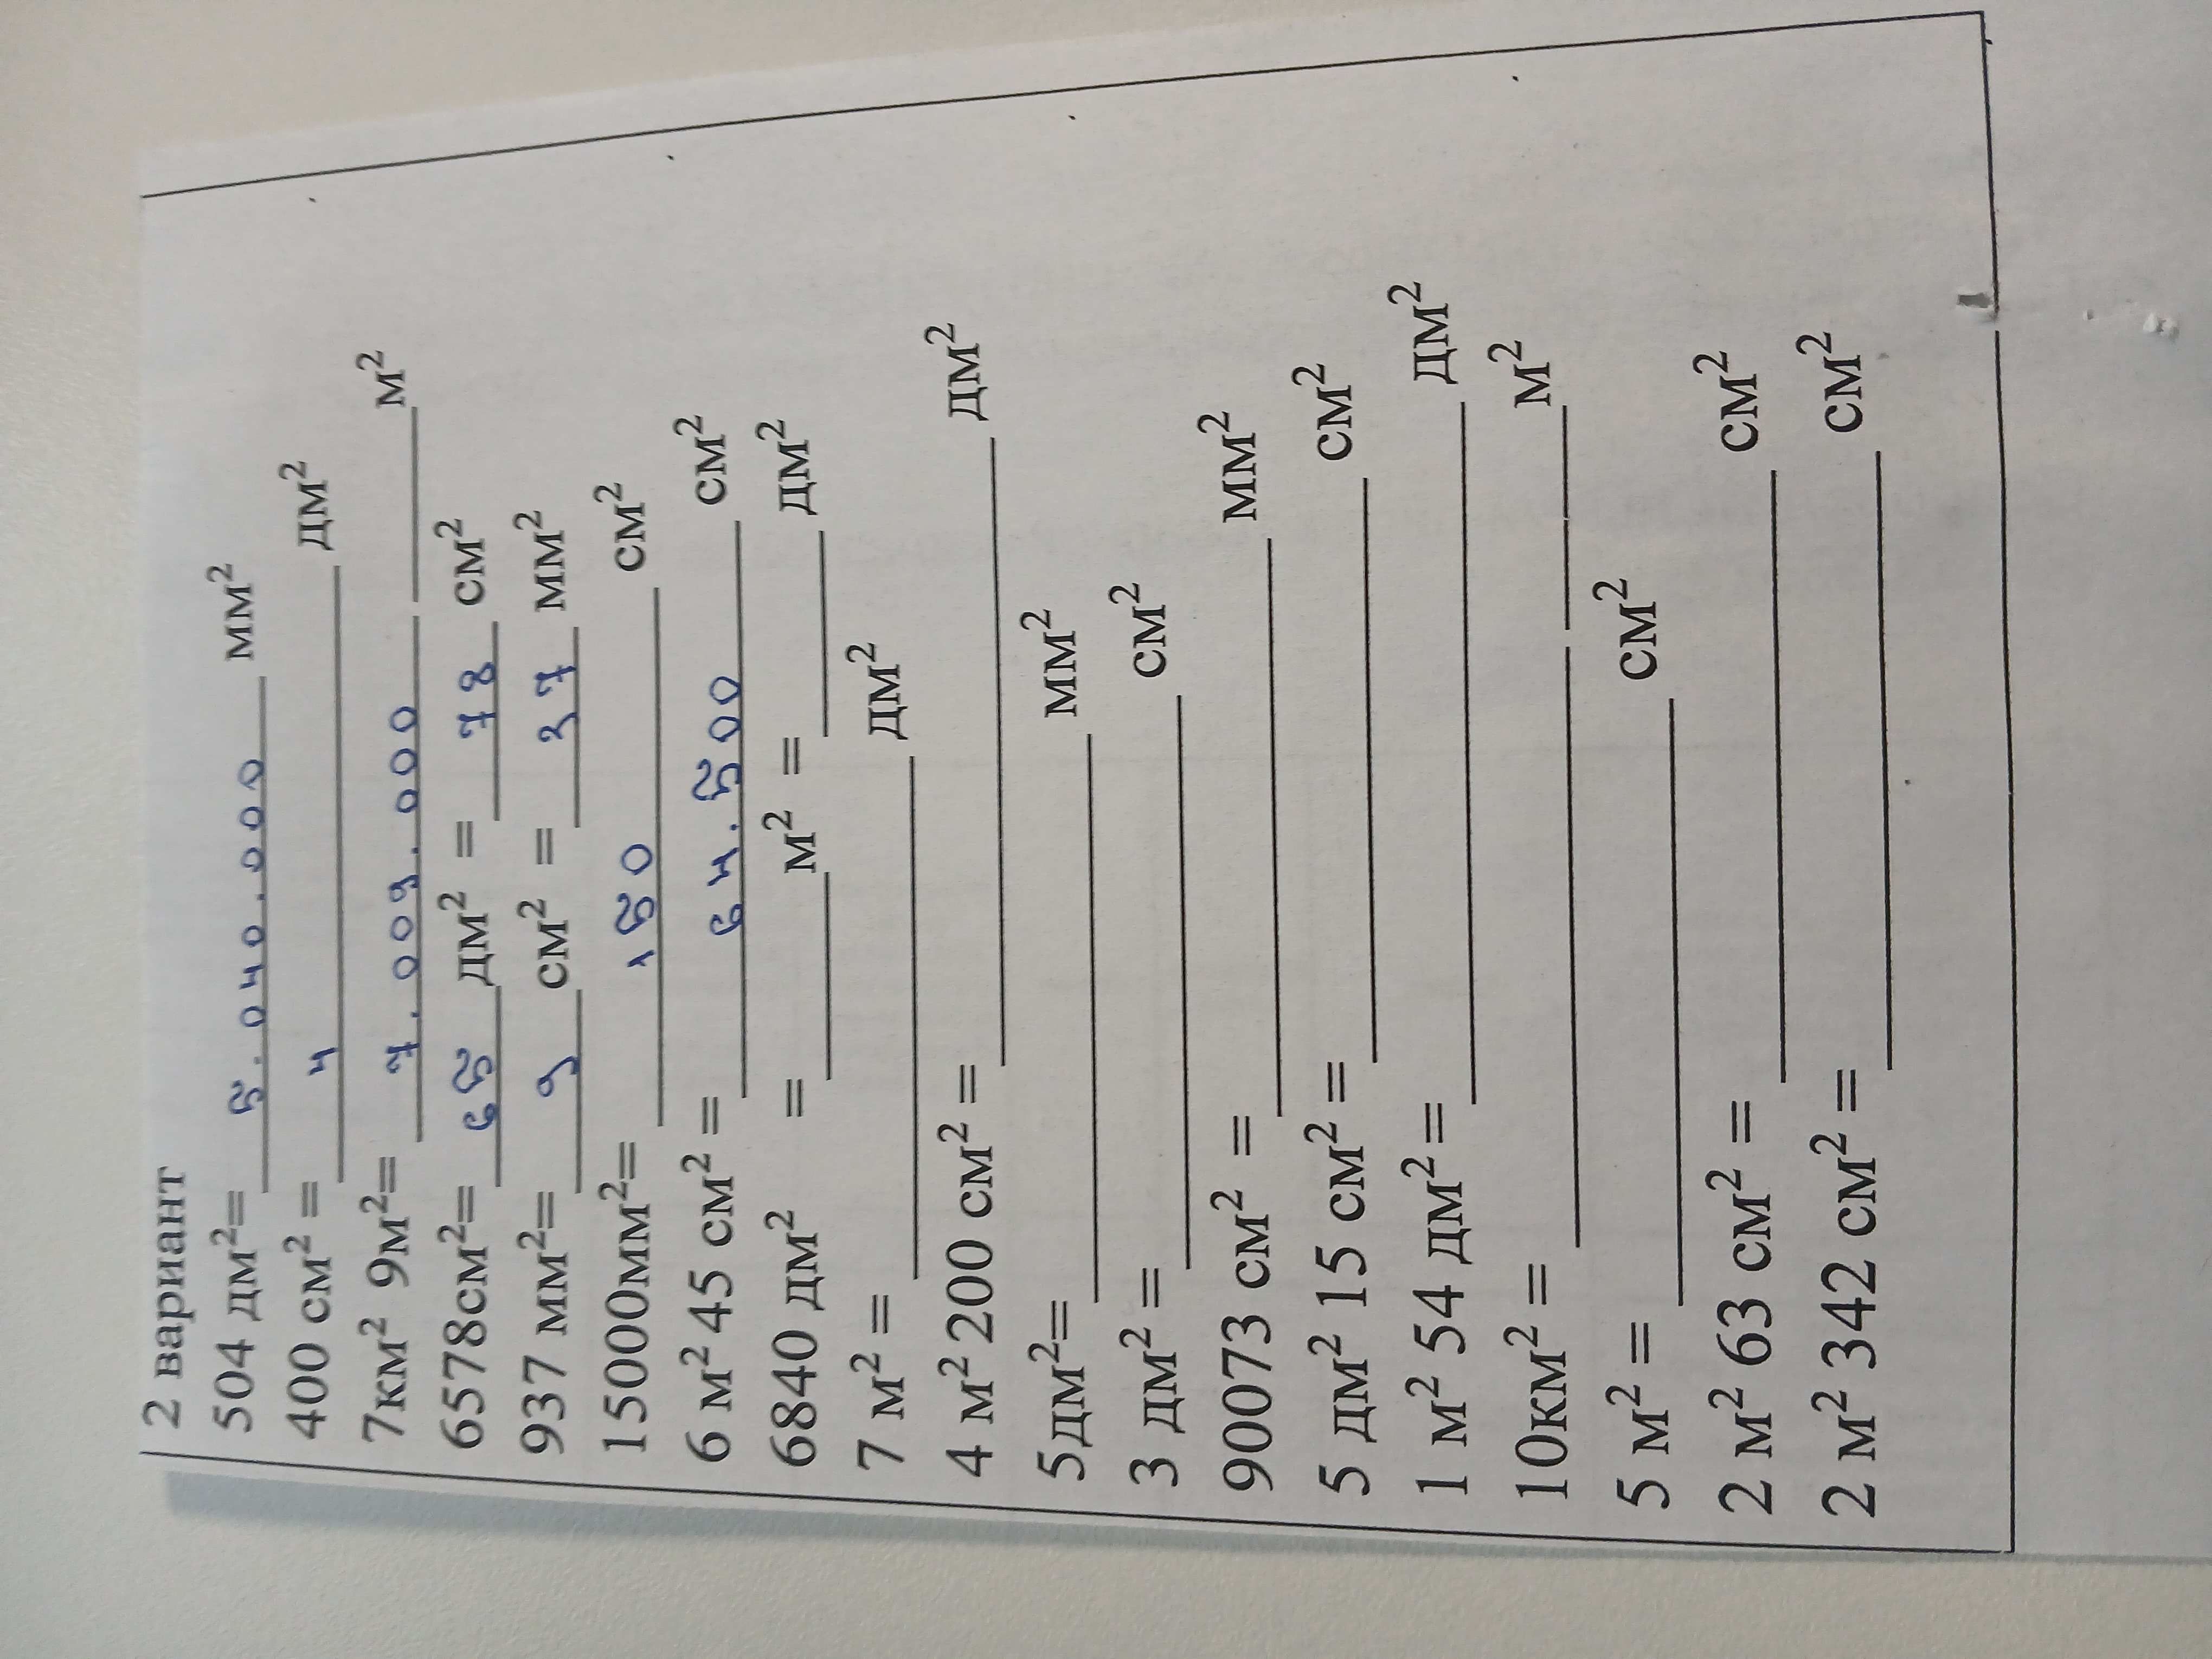 2 вариант
504 дм²= 5.040.000 мм²
400 см² = 4 дм²
7км² 9м²= 7.009.000 м²
6578см²= 65 дм² = 78 см²
937 мм²= 9 см² = 37 мм²
15000мм²= 150 см²
6 м² 45 см² = 64.500 см²
6840 дм² = ____ м² = ____ дм²
7 м² = ____ дм²
4 м² 200 см² = ____ дм²
5дм²= ____ мм²
3 дм² = ____ см²
90073 см² = ____ мм²
5 дм² 15 см² = ____ см²
1 м² 54 дм² = ____ дм²
10км² = ____ м²
5 м² = ____ см²
2 м² 63 см² = ____ см²
2 м² 342 см² = ____ см²